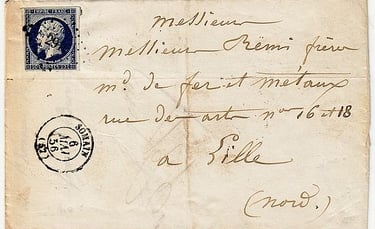 EMPIRE FRANC
Messieurs
Messieurs Rémi frères
md. de fer et métaux
rue des arts no 16 et 18
à Lille
(nord.)
SOMAIN
6
MAI
56
(57)